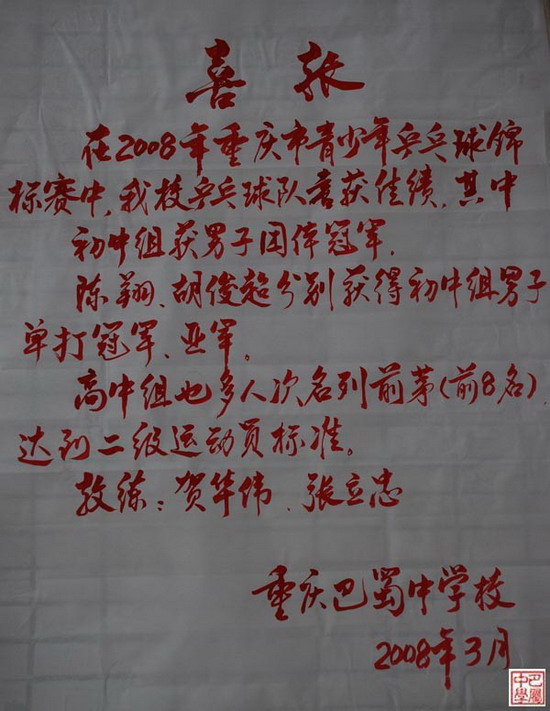 喜报
在2008年重庆市青少年乒乓球锦
标赛中,我校乒乓球队喜获佳绩,其中
初中组获男子团体冠军,
陈翔、胡俊超分别获得初中组男子
单打冠军、亚军。
高中组也多人次名列前茅(前8名),
达到二级运动员标准。
教练:贺华伟、张立忠
重庆巴蜀中学校
2008年3月
巴蜀
中學